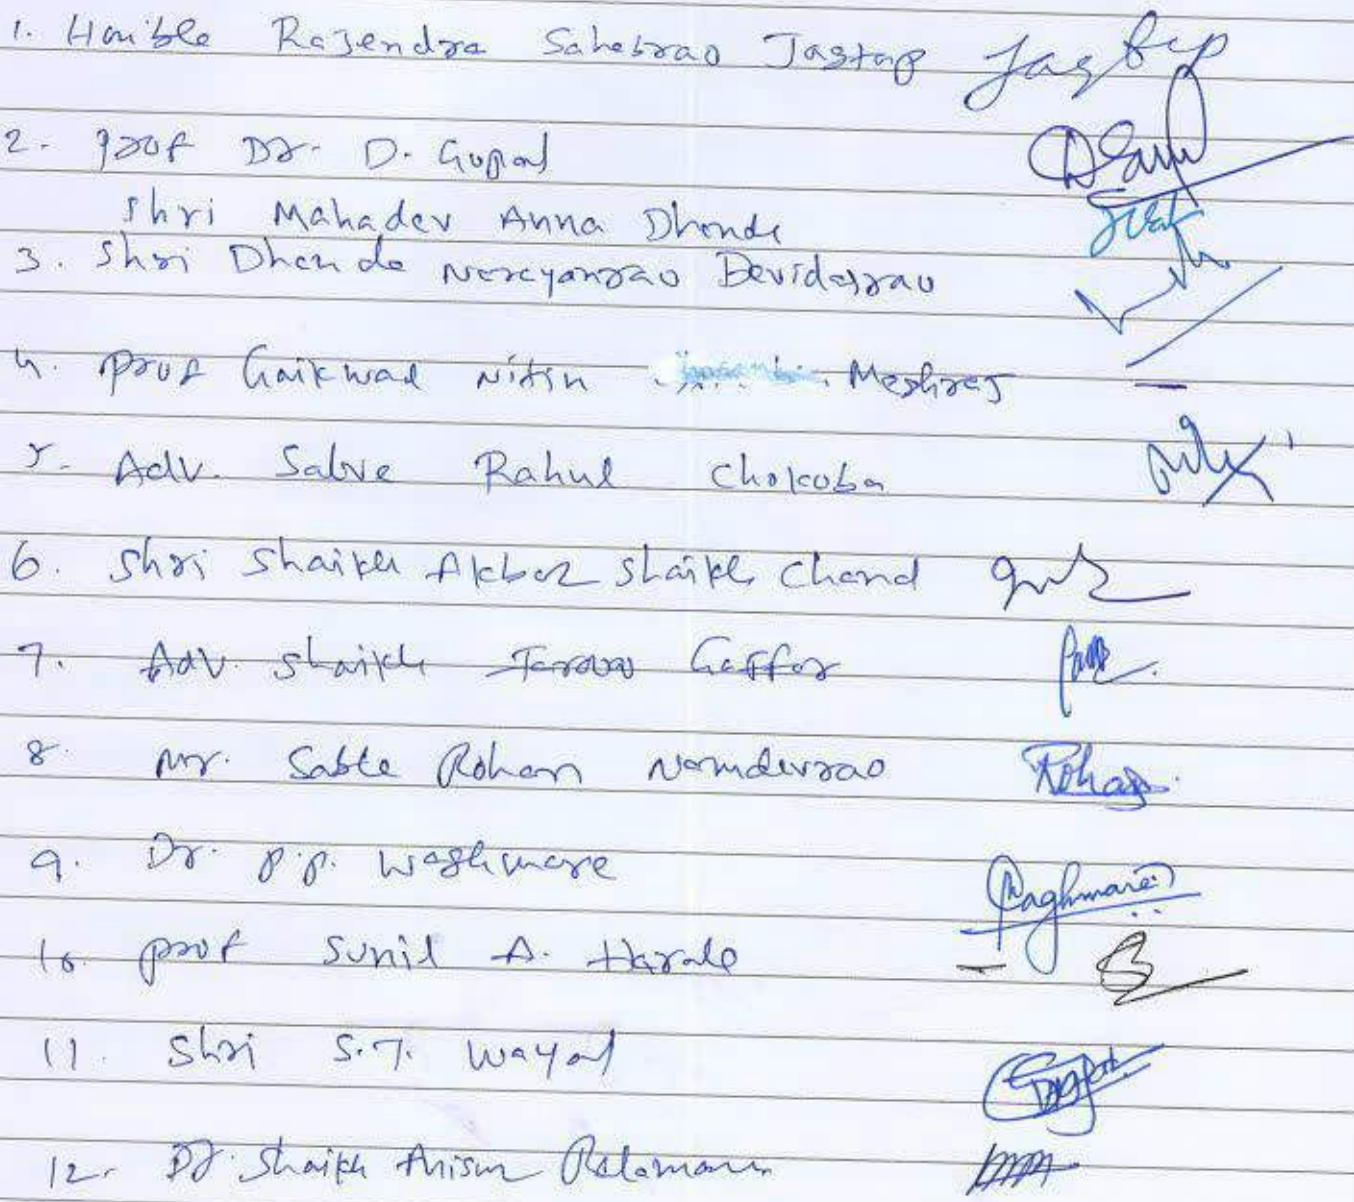 1. Hon'ble Rajendra Sahebrao Jagtap Jagtap
2. prof Dr. D. Gopal
Shri Mahadev Anna Dhonde
3. Shri Dhonde Narayanrao Devidasrao
4. prof Gaikwad Nitin Meghraj
5. Adv. Salve Rahul Chokoba
6. Shri Shaikh Akbar Shaikh Chand
7. Adv. Shaikh Gaffar
8. Mr. Sable Rohan Namdevrao Rohan
9. Dr. P.P. Waghmare Waghmare
10. prof Sunil A. Harale
11. Shri S.T. Wayal
12. Dr. Shaikh